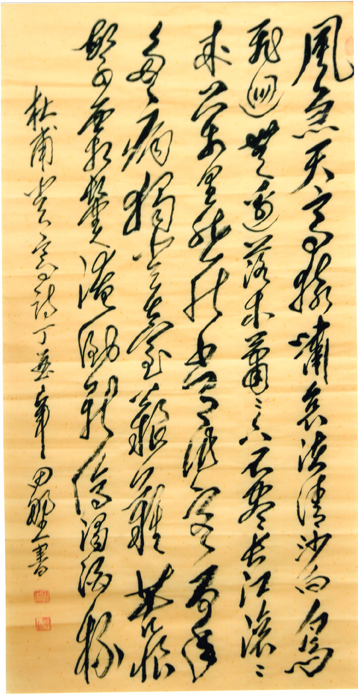 風急天高猿嘯哀渚清沙白鳥
飛迴無邊落木蕭〻下不盡長江滾〻
來萬里悲秋常作客百年
多病獨登臺艱難苦恨
繁霜鬢潦倒新停濁酒杯
杜甫登高詩丁亥年書